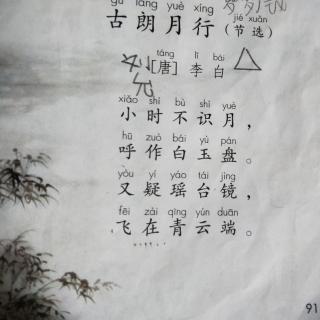 gǔ lǎng yuè xíng
古朗月行（节选）
jié xuǎn
táng lǐ bái
[唐] 李白
xiǎo shí bù shí yuè
小时不识月，
hū zuò bái yù pán
呼作白玉盘。
yòu yí yáo tái jìng
又疑瑶台镜，
fēi zài qīng yún duān
飞在青云端。
91